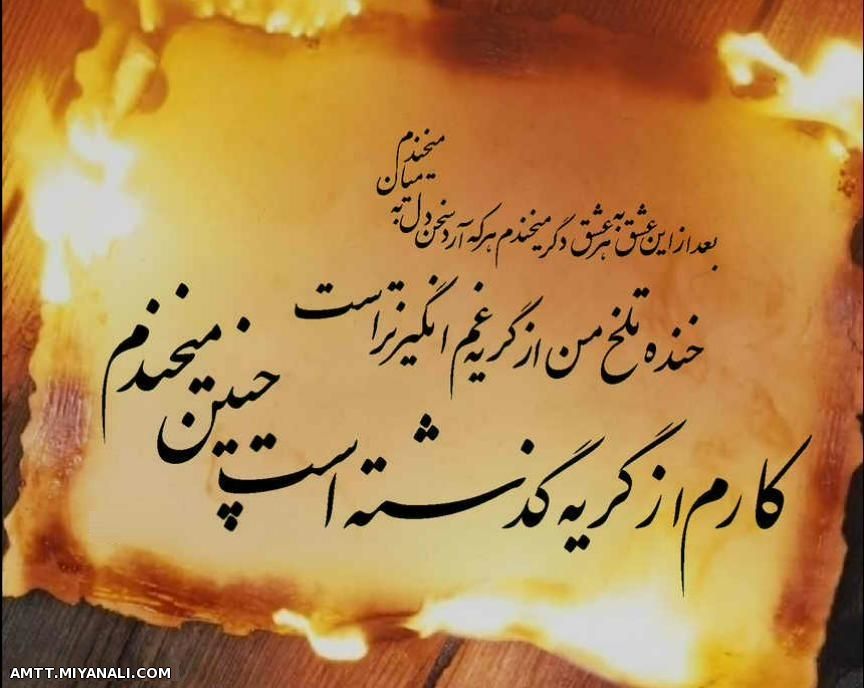 بعد از این عشق به هر عشق دگر میخندم هرکه آرد سخن دل به میان میخندم
خنده تلخ من از گریه غم انگیزتر است
کارم از گریه گذشته است چنین میخندم
AMTT.MIYANALI.COM